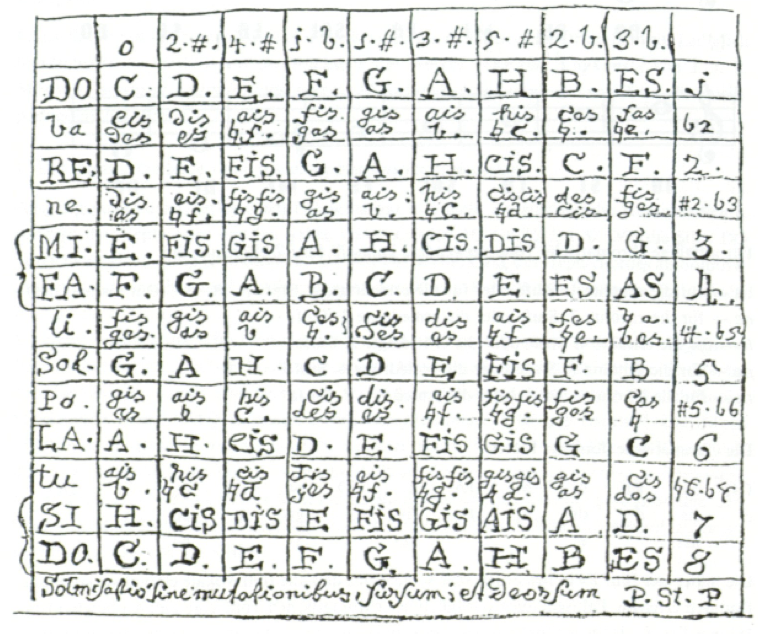 0 2.#. 4.# j.b. 1.#. 3.#. 5.# 2.b. 3.b.
DO C. D. E. F. G. A. H B. ES. j
ba cis des dis es ais 4f. fis. gas gis as ais b. his 4c. ces 4. fas 4e. b2
RE. D. E. FIS. G. A. H. CIS. C. F. 2.
ne. dis. es eis. 4f. fisfis 4g. gis as ais. b. his 4c. ciscis 4d. des cis fis ges. #2.b3
MI. E. FIS. GIS A. H. CIS. DIS D. G. 3.
FA. F. G. A. B. C. D. E. ES AS 4.
li. fis ges. gis as ais b Ces 4. cis des dis es ais 4f fes 4e. 4a. bes. 4.b5
Sol. G. A H C D E FIS F. B 5
Po. gis as ais b his C. Cis des dis. es ais 4f. fisfis 4g. fis ges Ces 4 #5.b6
LA. A. H. CIS D. E. FIS GIS G C 6
tu ais b. his 4c cis 4d dis es eis 4f. fisfis 4g. gisgis 4a. gis as cis des
SI H. CIS DIS E FIS GIS AIS A D. 7
DO. C. D. E. F. G. A. H B ES 8
Solmisatio sine mutationibus, sursum; et Deorsum P. St. P.